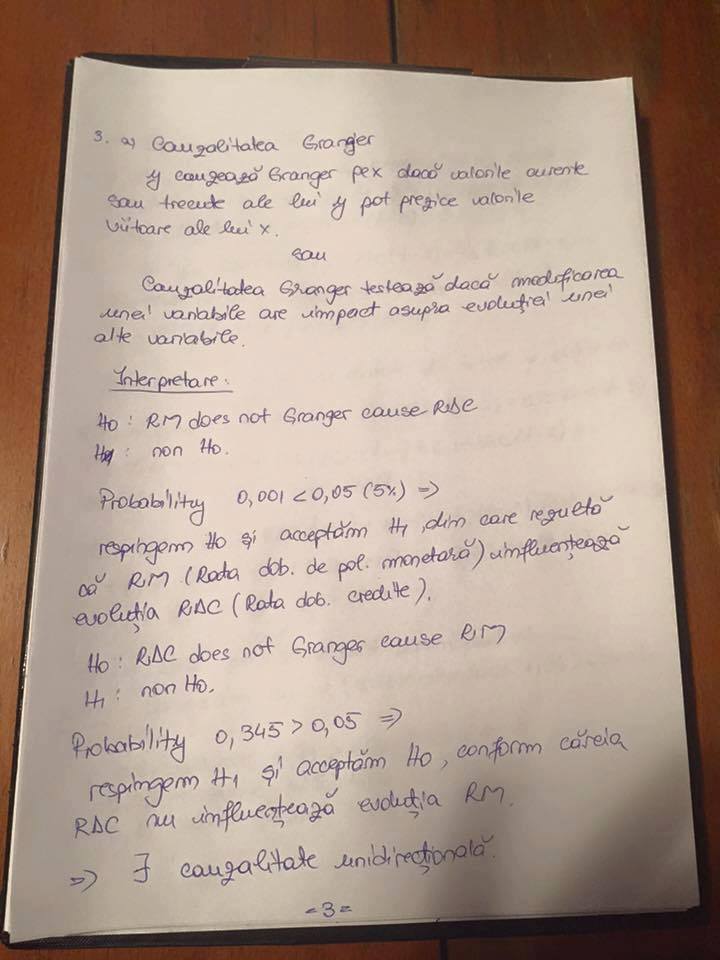 3. a) Cauzalitatea Granger
y cauzează Granger pe x dacă valorile curente
sau trecute ale lui y pot prezice valorile
viitoare ale lui x.
sau
Cauzalitatea Granger testează dacă modificarea
unei variabile are impact asupra evoluției unei
alte variabile.
Interpretare:
H0 : RM does not Granger cause RDC
H1 : non H0.
Probability 0,001 < 0,05 (5%) =>
respingem H0 și acceptăm H1, din care rezultă
că RM (Rata dob. de pol. monetară) influențează
evoluția RDC (Rata dob. credite).
H0 : RDC does not Granger cause RM
H1 : non H0.
Probability 0,345 > 0,05 =>
respingem H1 și acceptăm H0, conform căreia
RDC nu influențează evoluția RM.
=> ∃ cauzalitate unidirecțională.
= 3 =